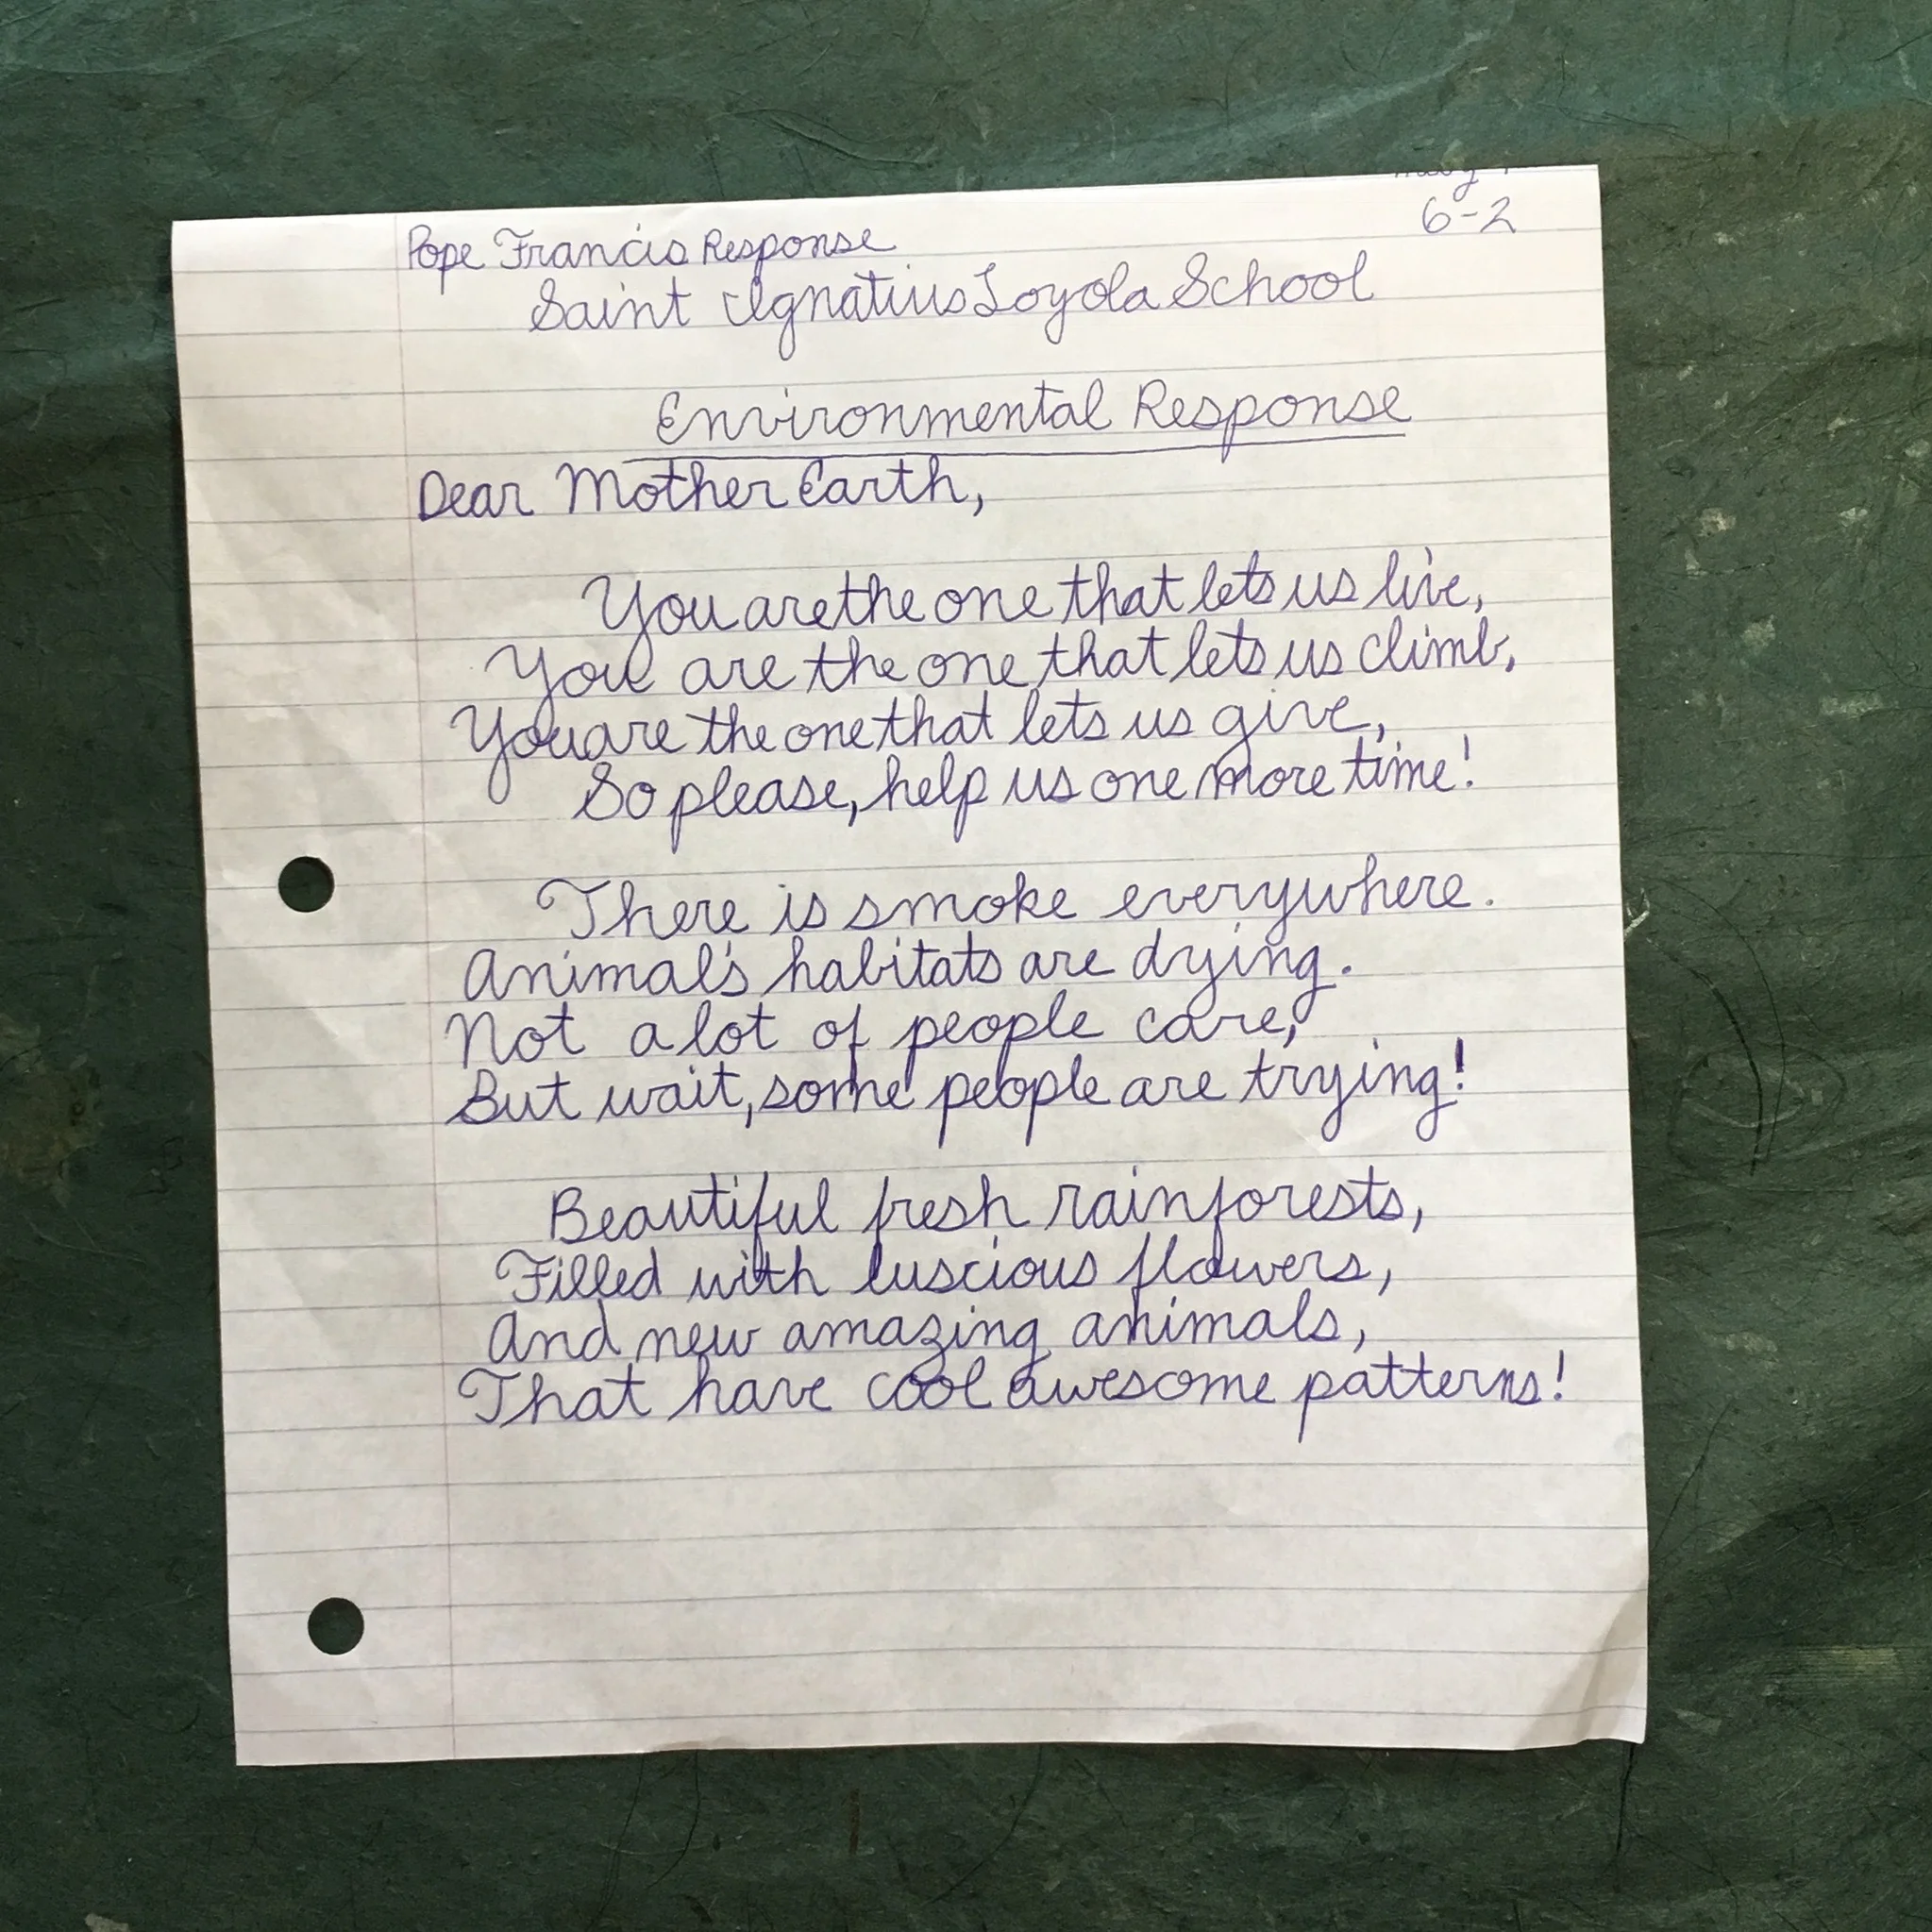 6-2
Pope Francis Response
Saint Ignatius Loyola School
Environmental Response
Dear Mother Earth,
You are the one that lets us live,
You are the one that lets us climb,
You are the one that lets us give,
So please, help us one more time!
There is smoke everywhere.
Animal's habitats are dying.
Not a lot of people care,
But wait, some people are trying!
Beautiful fresh rainforests,
Filled with luscious flowers,
And new amazing animals,
That have cool awesome patterns!